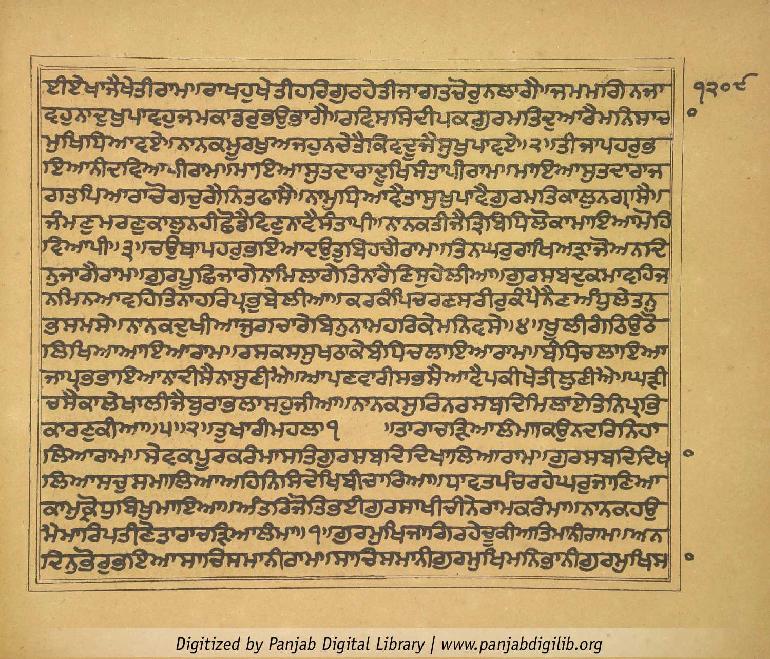 ਈਏਖਾਜੈਖੇਤੀਰਾਮ॥ਰਾਖਹੁਖੇਤੀਹਰਿਗੁਰਹੇਤੀਜਾਗਤਚੋਰੁਨਲਾਗੈ॥ਜਮਮਗਿਨਜਾ ੧੨੦੯
ਵਹੁਨਾਦੁਖੁਪਾਵਹੁਜਮਕਾਡਰੁਭਉਭਾਗੈ॥ਰਵਿਸਸਿਦੀਪਕਗੁਰਮਤਿਦੁਆਰੈਮਨਿਸਾਚਾ
ਮੁਖਿਧਿਆਵਏ॥ਨਾਨਕਮੂਰਖੁਅਜਹੁਨਚੇਤੈਕਿਵਦੂਜੈਸੁਖੁਪਾਵਏ॥੨॥ਤੀਜਾਪਹਰੁਭ
ਇਆਨੀਦਵਿਆਪੀਰਾਮ॥ਮਾਇਆਸੁਤਦਾਰਾਦੂਖਿਸੰਤਾਪੀਰਾਮ॥ਮਾਇਆਸੁਤਦਾਰਾਜ
ਗਤਪਿਆਰਾਚੋਗਚੁਗੈਨਿਤਫਾਸੈ॥ਨਾਮੁਧਿਆਵੈਤਾਸੁਖੁਪਾਵੈਗੁਰਮਤਿਕਾਲੁਨਗ੍ਰਾਸੈ॥
ਜੰਮਣੁਮਰਣੁਕਾਲੁਨਹੀਛੋਡੈਵਿਣੁਨਾਵੈਸੰਤਾਪੀ॥ਨਾਨਕਤੀਜੈਤ੍ਰਿਬਿਧਿਲੋਕਾਮਾਇਆਮੋਹਿ
ਵਿਆਪੀ॥੩॥ਚਉਥਾਪਹਰੁਭਇਆਦਉਤੁਬਿਹਾਗੈਰਾਮ॥ਤਿਨਘਰੁਰਾਖਿਅੜਾਜੋਅਨਦਿ
ਨੁਜਾਗੈਰਾਮ॥ਗੁਰਪੂਛਿਜਾਗੇਨਾਮਿਲਾਗੇਤਿਨਾਰੈਣਿਸੁਹੇਲੀਆ॥ਗੁਰਸਬਦੁਕਮਾਵਹਿਜ
ਨਮਿਨਆਵਹਿਤਿਨਾਹਰਿਪ੍ਰਭੁਬੇਲੀਆ॥ਕਰਕੰਪਿਚਰਣਸਰੀਰੁਕੰਪੈਨੈਣਅੰਧੁਲੇਤਨੁ
ਭਸਮਸੇ॥ਨਾਨਕਦੁਖੀਆਜੁਗਚਾਰੇਬਿਨੁਨਾਮਹਰਿਕੇਮਨਿਵਸੇ॥੪॥ਖੂਲੀਗੰਠਿਉਠੋ
ਲਿਖਿਆਆਇਆਰਾਮ॥ਰਸਕਸਸੁਖਠਾਕੇਬੰਧਿਚਲਾਇਆਰਾਮ॥ਬੰਧਿਚਲਾਇਆ
ਜਾਪ੍ਰਭਭਾਇਆਨਾਦੀਸੈਨਾਸੁਣੀਐ॥ਆਪਣਵਾਰੀਸਭਸੈਆਵੈਪਕੀਖੇਤੀਲੁਣੀਐ॥ਘੜੀ
ਚਸੇਕਾਲੇਖਾਲੀਜੈਬੁਰਾਭਲਾਸਹੁਜੀਆ॥ਨਾਨਕਸੁਰਿਨਰਸਬਦਿਮਿਲਾਏਤਿਨਿਪ੍ਰਭਿ
ਕਾਰਣੁਕੀਆ॥੫॥੨॥ਤੁਖਾਰੀਮਹਲਾ੧ ॥ਤਾਰਾਚੜਿਆਲੰਮਾਕਿਉਨਦਰਿਨਿਹਾ
ਲਿਆਰਾਮ॥ਸੇਵਕਪੂਰਕਰੰਮਾਸਤਿਗੁਰਸਬਦਿਦਿਖਾਲਿਆਰਾਮ॥ਗੁਰਸਬਦਿਦਿਖਾ
ਲਿਆਸਚੁਸਮਾਲਿਆਅਹਿਨਿਸਿਦੇਖਿਬੀਚਾਰਿਆ॥ਧਾਵਤਪੰਚਰਹੇਘਰੁਜਾਣਿਆ
ਕਾਮੁਕ੍ਰੋਧੁਬਿਖੁਮਾਰਿਆ॥ਅੰਤਰਿਜੋਤਿਭਈਗੁਰਸਾਖੀਚੀਨੇਰਾਮਕਰੰਮਾ॥ਨਾਨਕਹਉ
ਮੈਮਾਰਿਪਤੀਣੇਤਾਰਾਚੜਿਆਲੰਮਾ॥੧॥ਗੁਰਮੁਖਿਜਾਗਿਰਹੇਚੂਕੀਅਭਿਮਾਨੀਰਾਮ॥ਅਨ
ਦਿਨੁਭੋਰੁਭਇਆਸਾਚਿਸਮਾਨੀਰਾਮ॥ਸਾਚਿਸਮਾਨੀਗੁਰਮੁਖਿਮਨਿਭਾਨੀਗੁਰਮੁਖਿਸ
Digitized by Panjab Digital Library | www.panjabdigilib.org